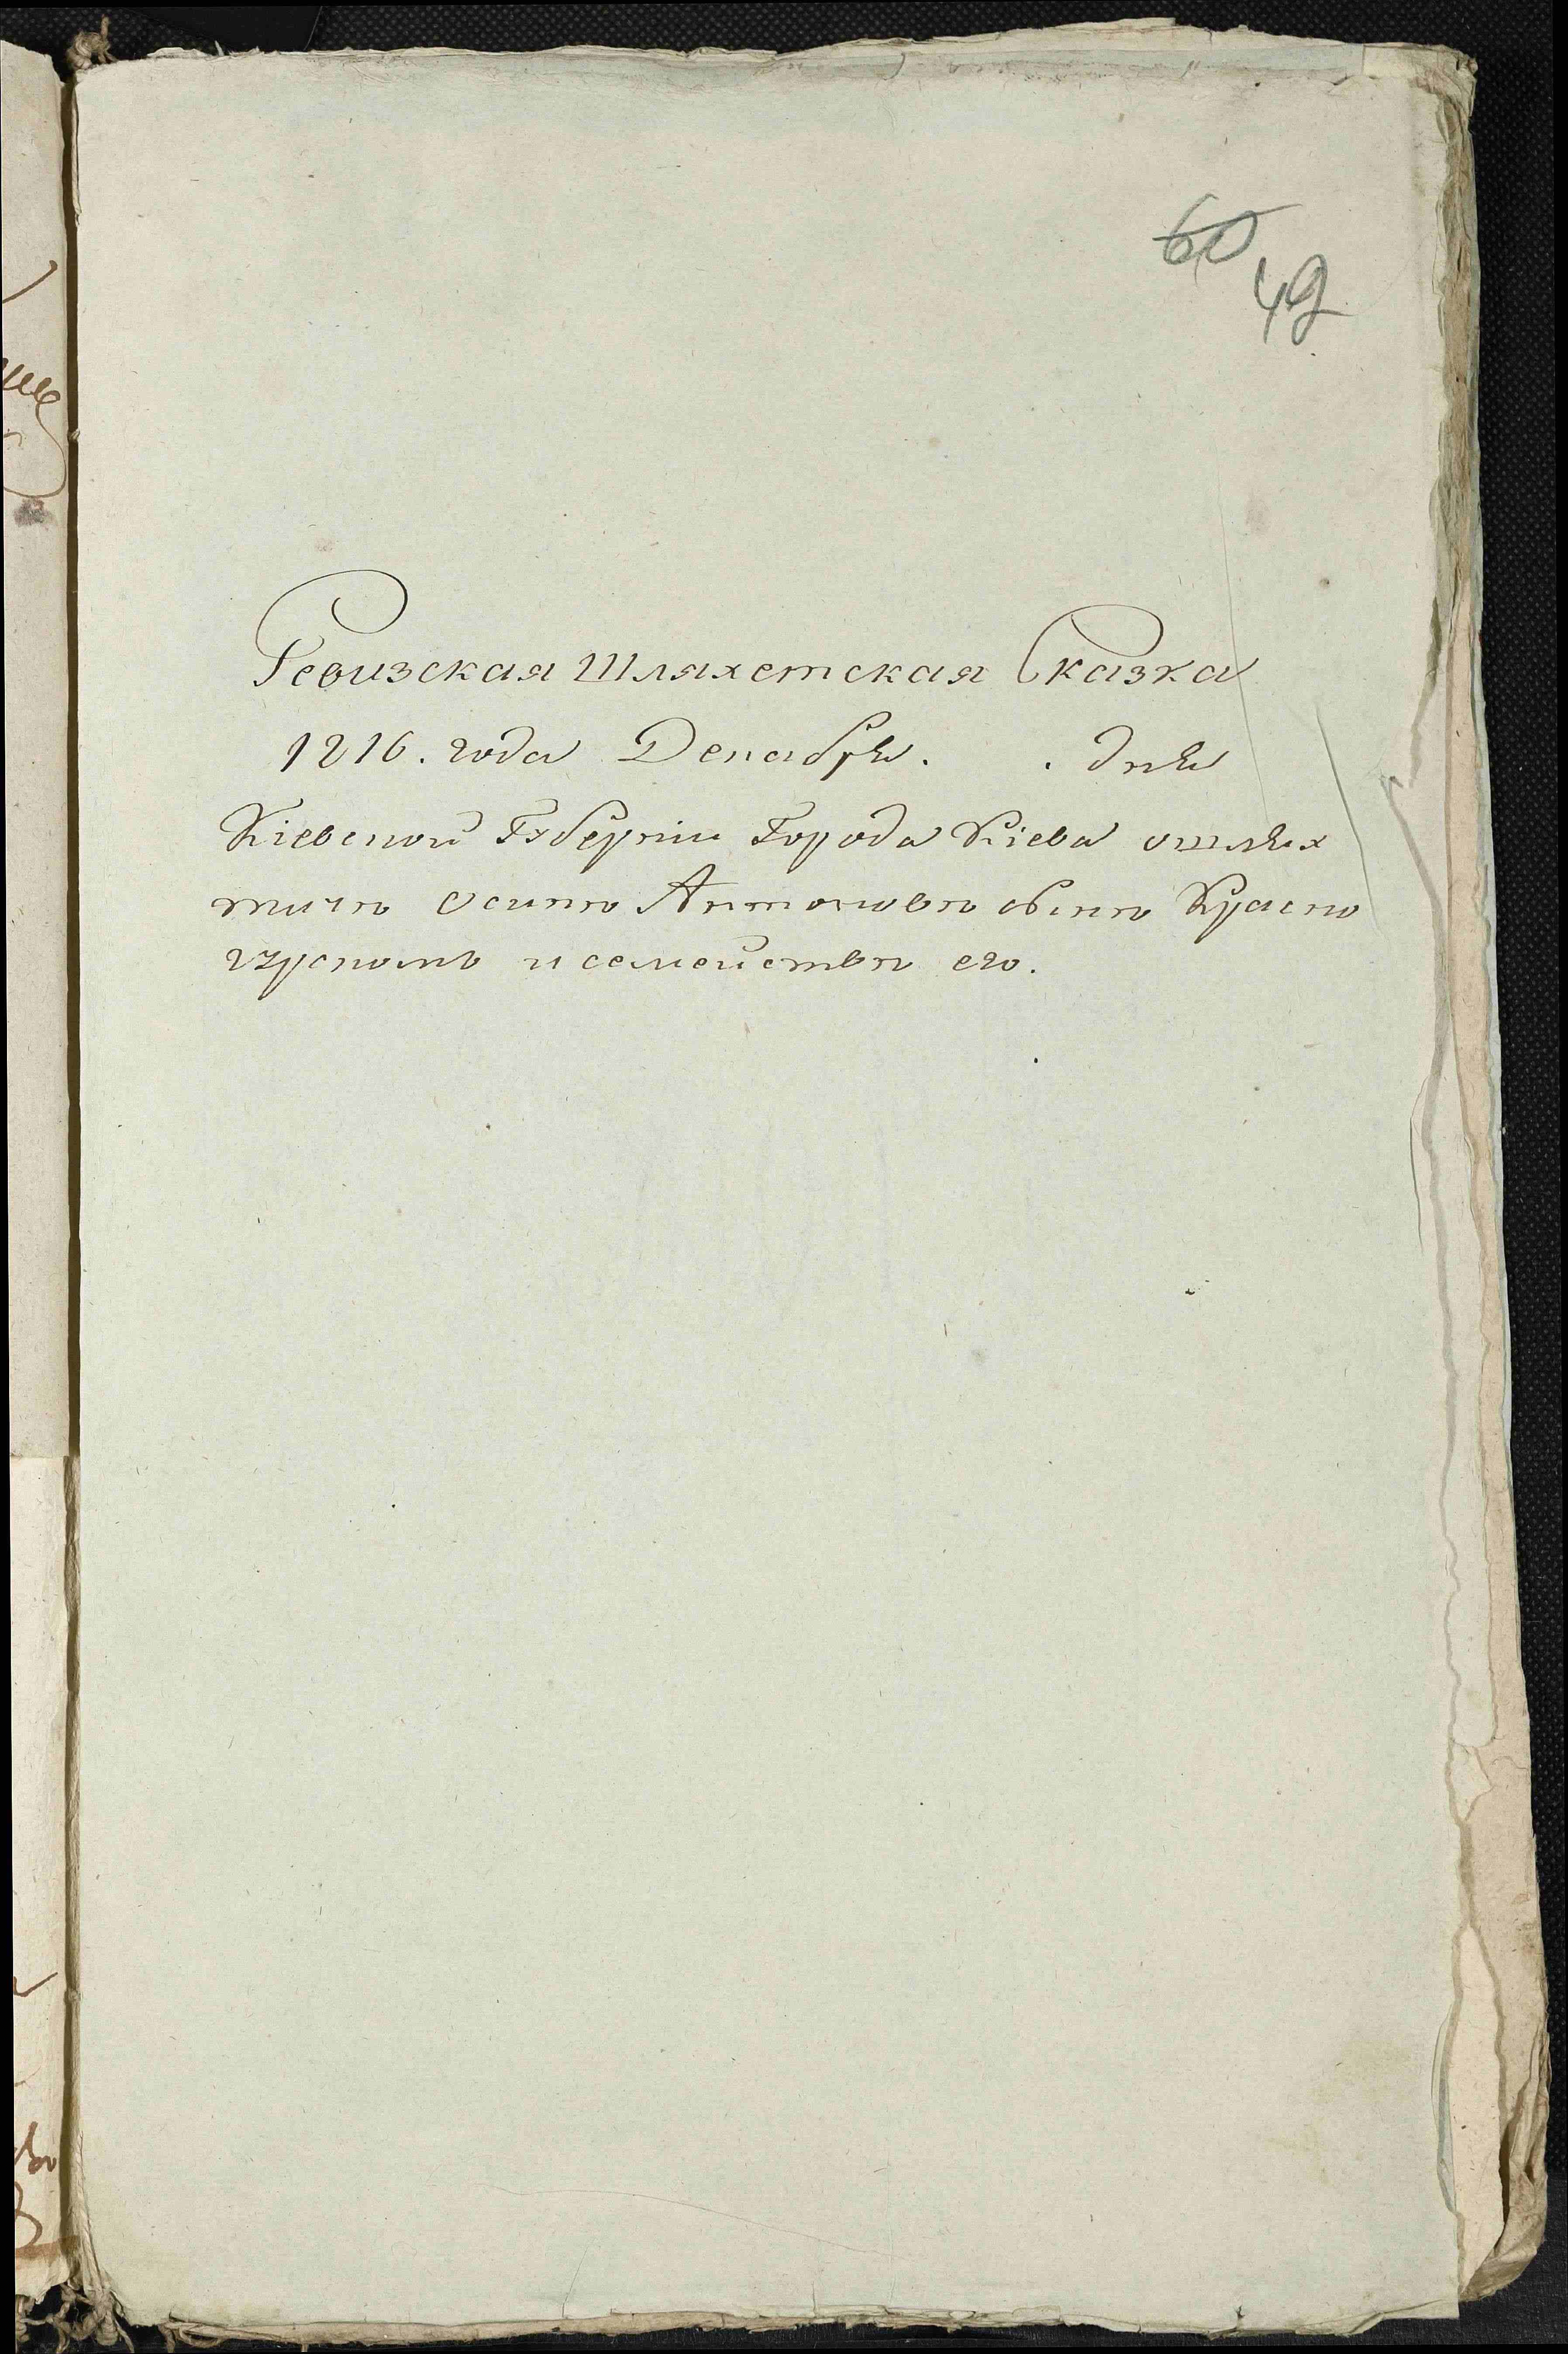 60
49
Ревизская Шляхетская Сказка
1816. года Декабря. . дня
Кіевской Губерніи Города Кіева ошлях
тичѣ Осипѣ Антоновѣ сынѣ Красно
гурскомъ и семействѣ его.